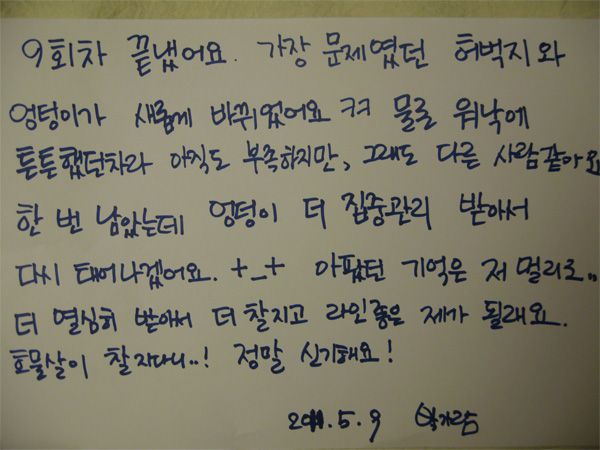 9회차 끝냈어요. 가장 문제였던 허벅지와
엉텅이가 새롭게 바뀌었어요 ㅋㅋ 물론 워낙에
튼튼했던차라 아직도 부족하지만, 그래도 다른 사람같아요
한 번 남았는데 엉덩이 더 집중관리 받아서
다시 태어나겠어요. +_+ 아팠던 기억은 저 멀리로..
더 열심히 받아서 더 찰지고 라인좋은 제가 될래요.
흐물살이 찰지다니..! 정말 신기해요!
2011.5.9